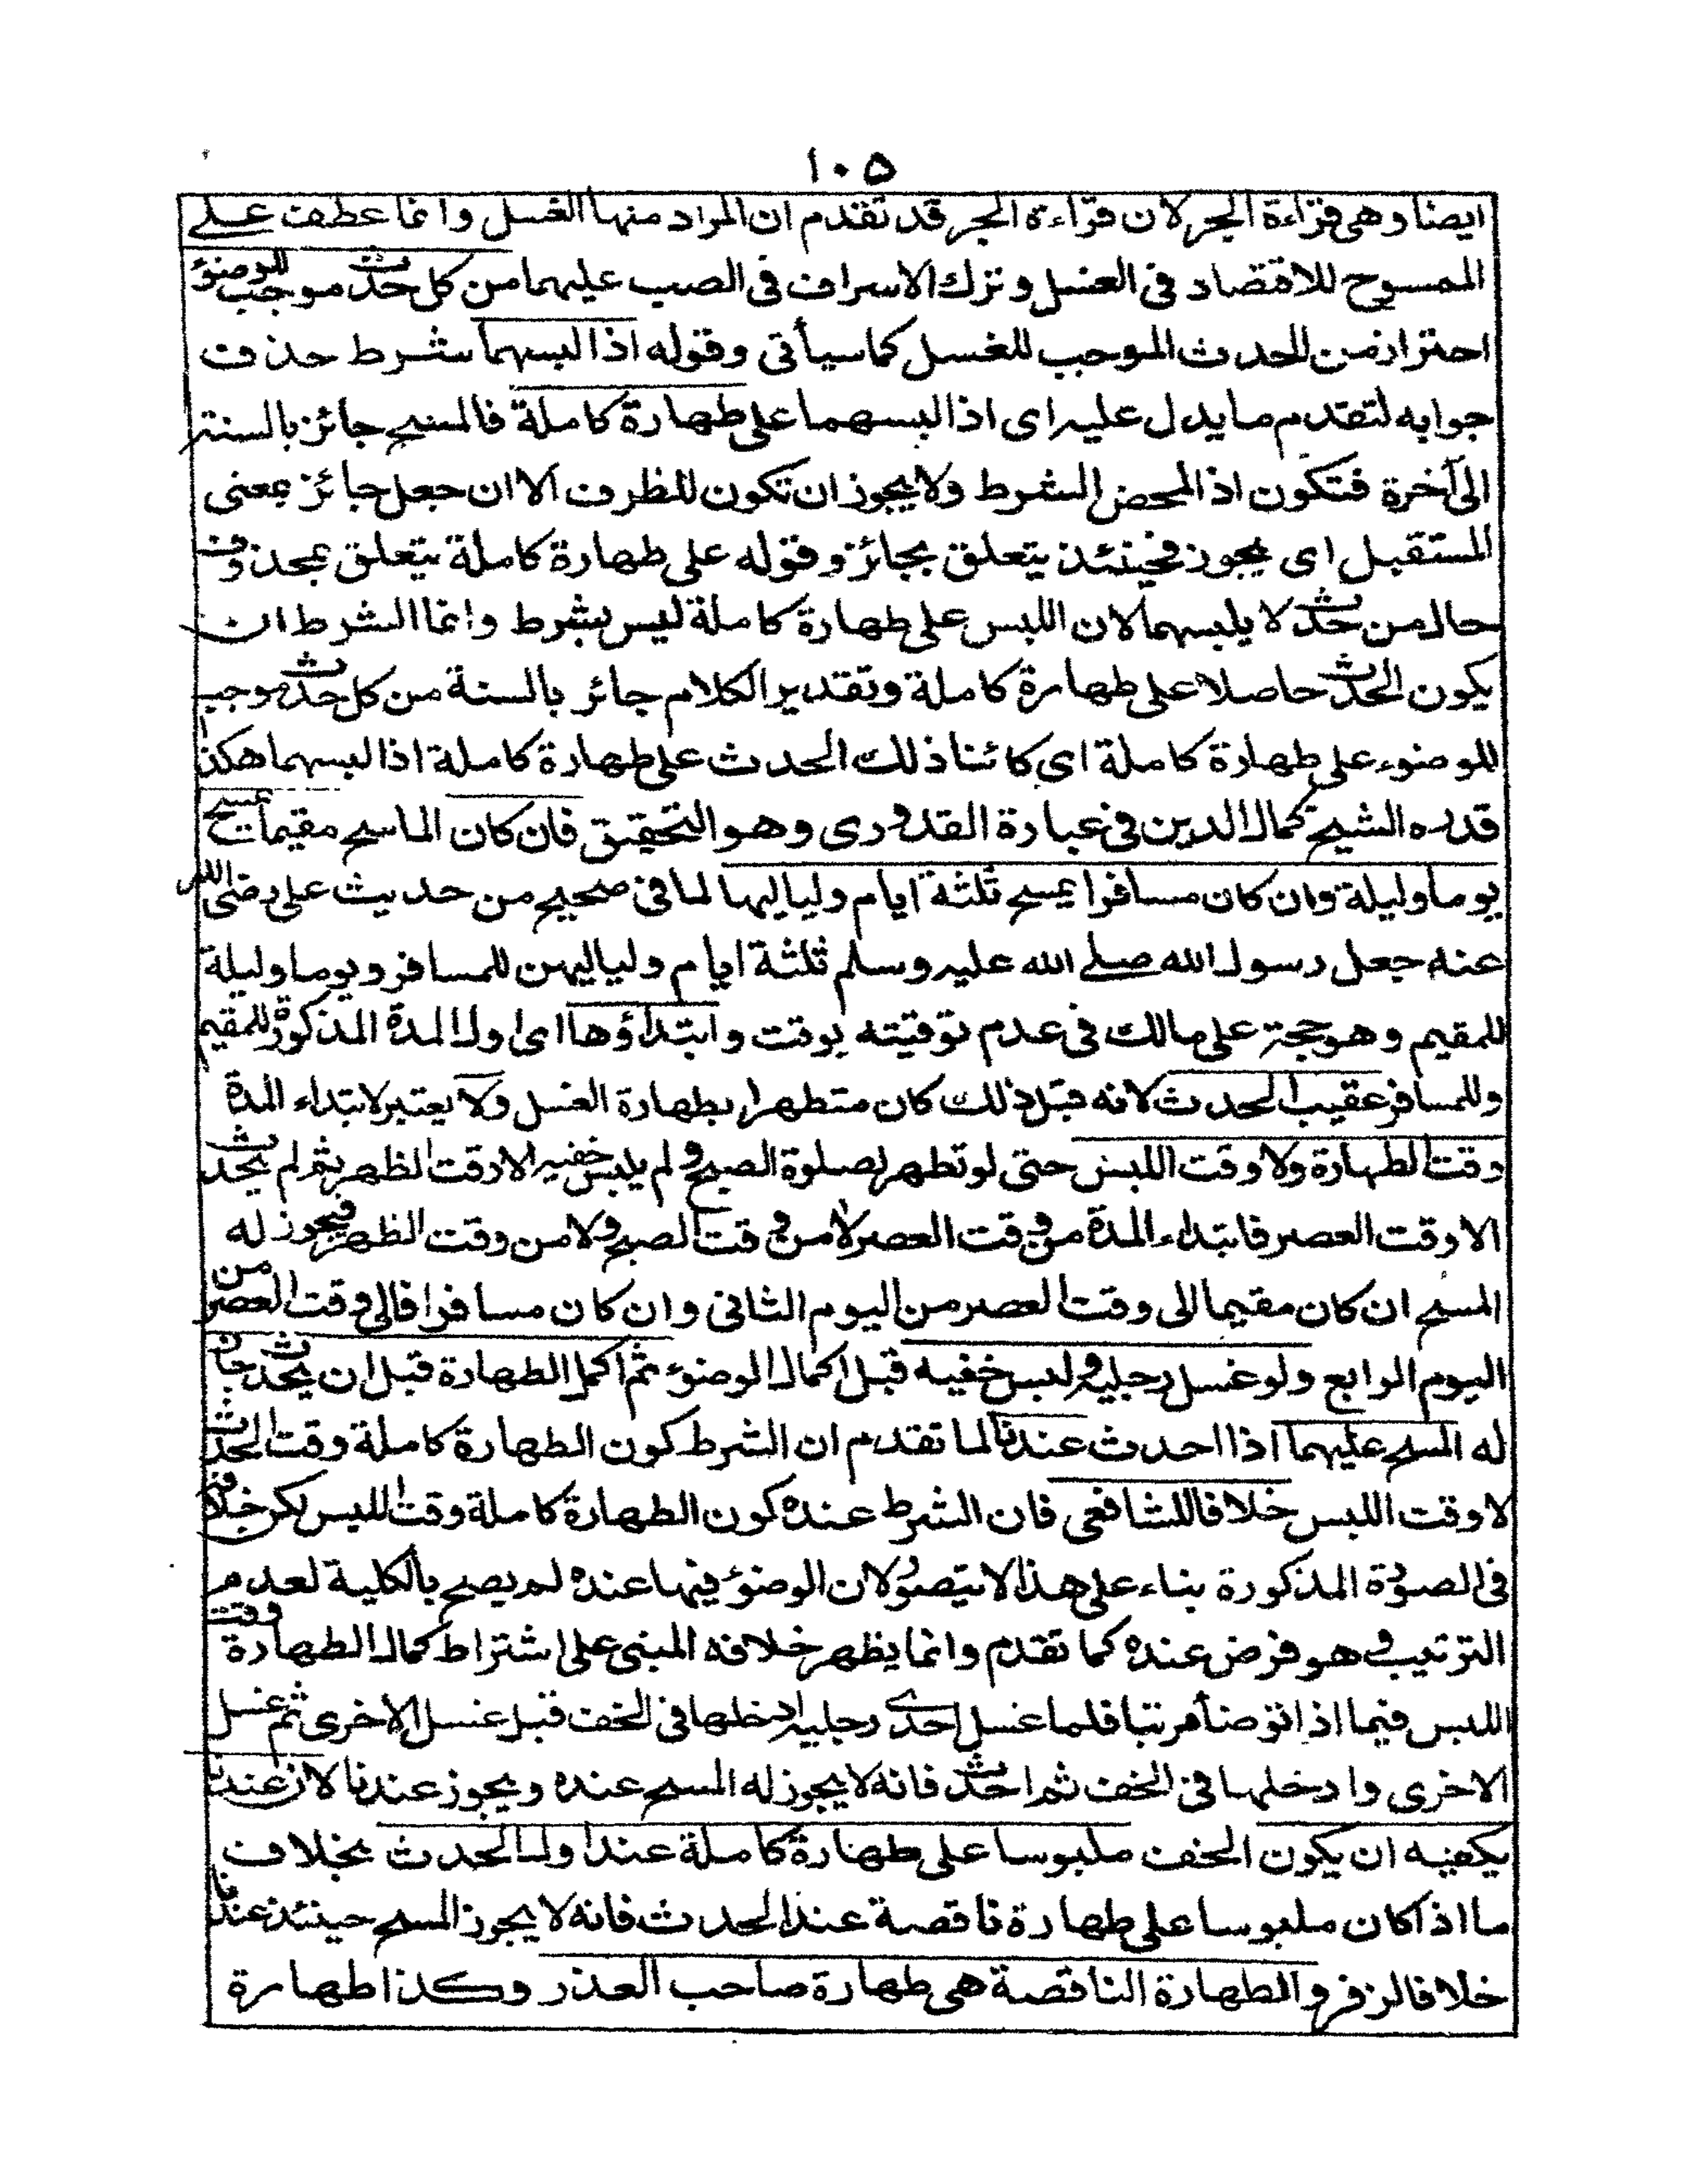 ١٠٥
ايضا وهى قراءة الجر لان قراءة الجر قد تقدم ان المراد منها الغسل وانما عطف على
الممسوح للاقتصاد فى الغسل وترك الاسراف فى الصب عليهما من كل حدث موجب للوضوء
احتراز من الحدث الموجب للغسل كما سيأتى وقوله اذا لبسهما شرط حذف
جوابه لتقدم ما يدل عليه اى اذا لبسهما على طهارة كاملة فالمسح جائز بالسنة
الى آخره فتكون اذا لمحض الشرط ولا يجوز ان تكون للظرف الا ان جعل جائز بمعنى
المستقبل اى يجوز فحينئذ يتعلق بجائز وقوله على طهارة كاملة يتعلق بمحذوف
حال من حدث لا بلبسهما لان اللبس على طهارة كاملة ليس بشرط وانما الشرط ان
يكون الحدث حاصلا على طهارة كاملة وتقدير الكلام جائز بالسنة من كل حدث موجب
للوضوء على طهارة كاملة اى كائنا ذلك الحدث على طهارة كاملة اذا لبسهما هكذا
قدره الشيخ كمال الدين فى عبارة القدورى وهو التحقيق فان كان الماسح مقيما يمسح
يوما وليلة وان كان مسافرا يمسح ثلثة ايام ولياليها لما فى صحيح من حديث على رضى الله
عنه جعل رسول الله صلى الله عليه وسلم ثلثة ايام ولياليهن للمسافر ويوما وليلة
للمقيم وهو حجة على مالك فى عدم توقيته بوقت وابتداؤها اى اول المدة المذكورة للمقيم
وللمسافر عقيب الحدث لانه قبل ذلك كان متطهرا بطهارة الغسل ولا يعتبر لابتداء المدة
وقت الطهارة ولا وقت اللبس حتى لو تطهر لصلوة الصبح ولم يلبس خفيه الا وقت الظهر ثم لم يحدث
الا وقت العصر فابتداء المدة من وقت العصر لا من وقت الصبح ولا من وقت الظهر فيجوز له
المسح ان كان مقيما الى وقت العصر من اليوم الثانى وان كان مسافرا فالى وقت العصر من
اليوم الرابع ولو غسل رجليه ولبس خفيه قبل اكمال الوضوء ثم اكمل الطهارة قبل ان يحدث جاز
له المسح عليهما اذا احدث عندنا لما تقدم ان الشرط كون الطهارة كاملة وقت الحدث
لا وقت اللبس خلافا للشافعى فان الشرط عنده كون الطهارة كاملة وقت اللبس لكن خلافه
فى الصورة المذكورة بناء على هذا لا يتصور لان الوضوء فيها عنده لم يصح بالكلية لعدم
الترتيب وهو فرض عنده كما تقدم وانما يظهر خلافه المبنى على اشتراط كمال الطهارة وقت
اللبس فيما اذا توضأ مرتبا فلما غسل احدى رجليه ادخلها فى الخف قبل غسل الاخرى ثم غسل
الاخرى وادخلها فى الخف ثم احدث فانه لا يجوز له المسح عنده ويجوز عندنا لان عندنا
يكفيه ان يكون الخف ملبوسا على طهارة كاملة عند اول الحدث بخلاف
ما اذا كان ملبوسا على طهارة ناقصة عند الحدث فانه لا يجوز المسح حينئذ عندنا
خلافا لزفر والطهارة الناقصة هى طهارة صاحب العذر وكذا طهارة